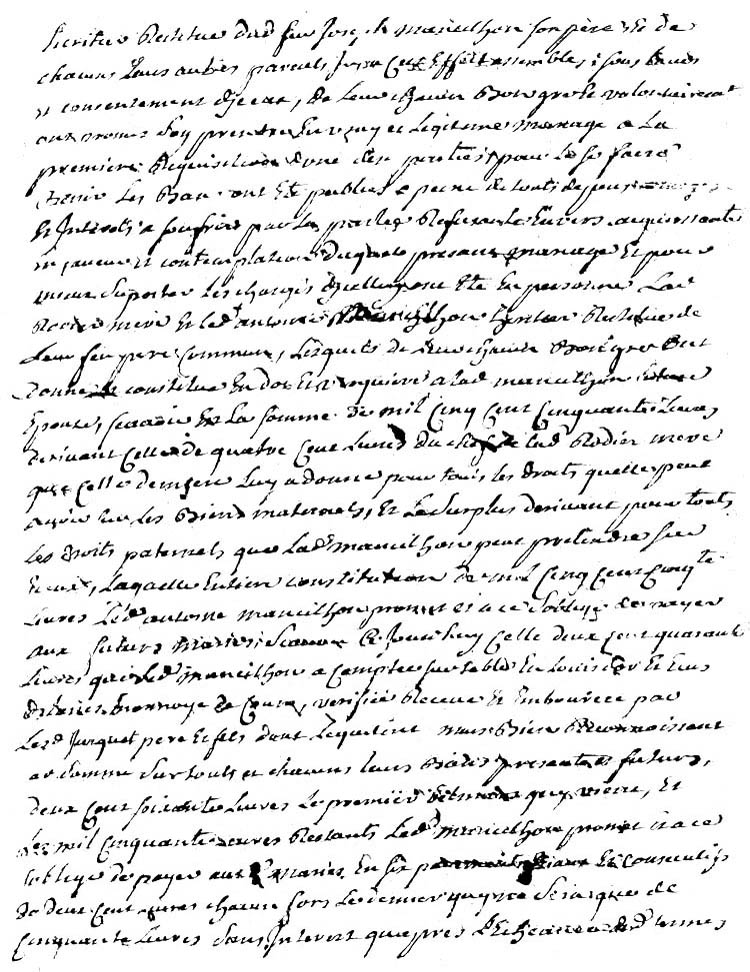 heritier de feu Joseph marcilhon son père et de
chacuns Leurs autres parents pour cet Effet assemblés, Sous Lavis
et consentement diceux, de Leur chacun Bon gré et volontairement
ont promis Soy prendre En vray et Legitime mariage a La
premiere Requisition dune des parties, pour Le se faire
Les Bans ont Eté publiés a peine de touts depens
Et Interets a souffrir par La partie Refusante Envers acquiessante
en faveur et contemplation duquel present mariage Et pour
mieux suporter Les charges dicelluy ont Eté En personne Lad
Rodier mere Et led antoine marcilhon heritier de
Leur feu pere commun, Lesquels de Leur chacun Bon gré Ont
Donné et constitué En dot Et a Lad marcilhon future
Epouse, La somme de mil Cinq Cent Cinquante Livres
derivant Celle de quatre Cent Livres du chef de lad Rodier mere
que Celle derniere Luy a donné pour touts les droits quelle peut
avoir sur les Biens maternels, Et Le Surplus derivant pour touts
Les droits paternels que Lad marcilhon peut pretendre sur
iceux, Laquelle Entiere constitution de mil Cinq Cent Cinqte
Livres Led antoine marcilhon promet et a ce Soblige de payer
aux futurs mariés, Scavoir Ce Jourdhuy Celle deux Cent quarante
Livres que Led marcilhon a Compté sur table En Louis dor Et Ecus
dargent monnoye de Cours, verifiée Receue Et Emboursée par
Lesd Jurquet pere Et fils dont Lequittent mais Bien Reconnoissent
ad somme Sur touts et chacuns leurs Biens presents et futurs,
deux Cent soixante Livres Le premier qui vient, Et
Les mil Cinquante Livres Restants Led marcilhon promet et a ce
soblige de payer auxd mariés En six payements Egaux Et Consecutifs
de deux Cent Livres chacun hors Le dernier qui ne Sera que de
Cinquante Livres Sans Interet quapres Lecheance desd termes